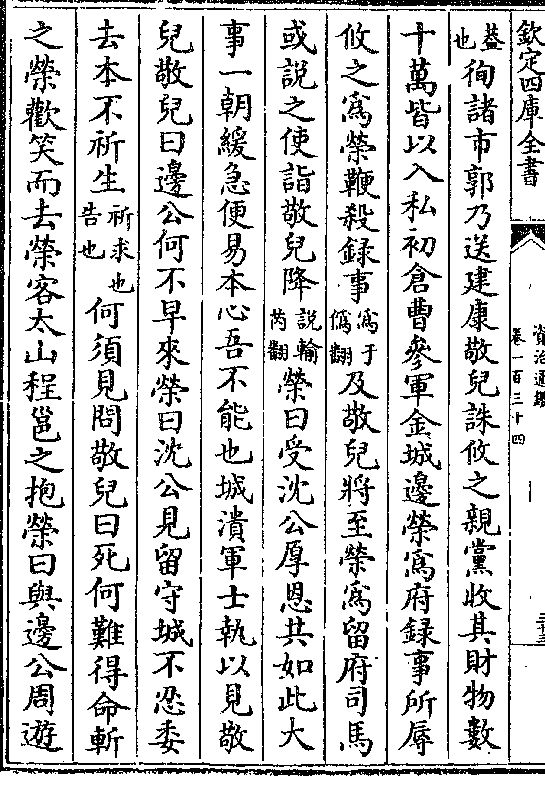 欽定四庫全書
資治通鑑
卷一百三十四
蓋也徇諸市郭乃送建康敬兒誅攸之親黨收其財物數
十萬皆以入私初倉曹參軍金城邊榮爲府録事所辱
攸之爲榮鞭殺録事爲于僞翻及敬兒將至榮爲留府司馬
或説之使詣敬兒降説輸芮翻榮曰受沈公厚恩共如此大
事一朝緩急便易本心吾不能也城潰軍士執以見敬
兒敬兒曰邊公何不早來榮曰沈公見留守城不忍委
去本不祈生祈求也告也何須見問敬兒曰死何難得命斬
之榮歡笑而去榮客太山程邕之抱榮曰與邊公周遊